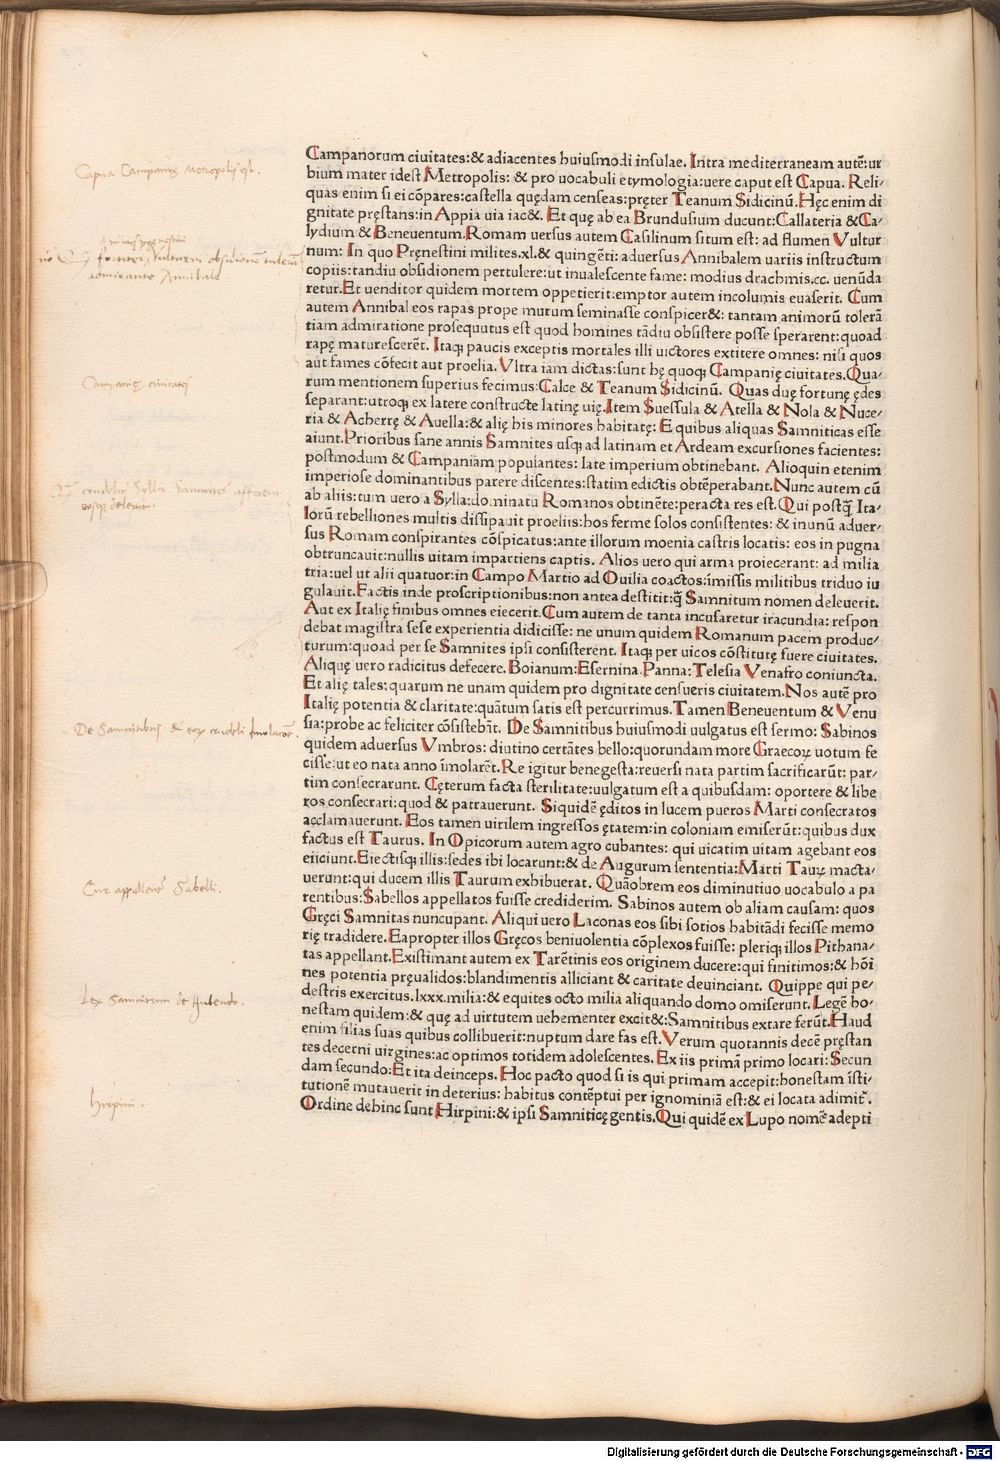 Campanorum ciuitates:& adiacentes huiusmodi insulae. Intra mediterraneam autē:ur
bium mater idest Metropolis: & pro uocabuli etymologia:uere caput est Capua. Reli/
quas enim si ei cōpares:castella quędam censeas:pręter Teanum Sidicinū.Hęc enim di
gnitate pręstans:in Appia uia iac&. Et quę ab ea Brundusium ducunt:Callateria &Ca/
lydium & Beneuentum.Romam uersus autem Casilinum situm est: ad flumen Vultur
num: In quo Pręnestini milites.xl.& quingēti: aduersus Annibalem uariis instructum
copiis:tandiu obsidionem pertulere:ut inualescente fame: modius drachmis.cc. uenūda
retur.Et uenditor quidem mortem oppetierit:emptor autem incolumis euaserit. Cum
autem Annibal eos rapas prope murum seminasse conspicer&: tantam animorū tolerā
tiam admiratione prosequutus est quod homines tādiu obsistere posse sperarent:quoad
rapę maturescerēt. Itaqꝫ paucis exceptis mortales illi uictores extitere omnes: nisi quos
aut fames cōfecit aut proelia. Vltra iam dictas:sunt hę quoqꝫ Campanię ciuitates.Qua/
rum mentionem superius fecimus:Calce & Teanum Sidicinū. Quas duę fortunę ędes
separant:utroqꝫ ex latere constructe latinę uię.Item Suessula & Atella & Nola & Nuce/
ria & Acherrę & Auella:& alię his minores habitatę: E quibus aliquas Samniticas esse
aiunt.Prioribus sane annis Samnites usqꝫ ad latinam et Ardeam excursiones facientes:
postmodum & Campaniam populantes: late imperium obtinebant. Alioquin etenim
imperiose dominantibus parere discentes:statim edictis obtēperabant.Nunc autem cū
ab aliis:tum uero a Sylla:dominatū Romanos obtinēte:peracta res est. Qui postq̄ Ita/
lorū rebelliones multis dissipauit proeliis:hos ferme solos consistentes: & inunū aduer/
sus Romam conspirantes cōspicatus:ante illorum moenia castris locatis: eos in pugna
obtruncauit:nullis uitam impartiens captis. Alios uero qui arma proiecerant: ad milia
tria:uel ut alii quatuor:in Campo Martio ad Ouilia coactos:īmissis militibus triduo iu
gulauit.Factis inde proscriptionibus:non antea destitit:q̄ Samnitum nomen deleuerit.
Aut ex Italię finibus omnes eiecerit.Cum autem de tanta incusaretur iracundia: respon
debat magistra sese experientia didicisse: ne unum quidem Romanum pacem produc/
turum:quoad per se Samnites ipsi consisterent. Itaqꝫ per uicos cōstitutę fuere ciuitates.
Aliquę uero radicitus defecere. Boianum:Esernina. Panna: Telesia Venafro coniuncta.
Et alię tales:quarum ne unam quidem pro dignitate censueris ciuitatem.Nos autē pro
Italię potentia & claritate:quātum satis est percurrimus. Tamen Beneuentum & Venu
sia:probe ac feliciter cōsistebāt. De Samnitibus huiusmodi uulgatus est sermo: Sabinos
quidem aduersus Vmbros: diutino certātes bello:quorundam more Graecoꝝ uotum fe
cisse:ut eo nata anno īmolarēt.Re igitur benegesta:reuersi nata partim sacrificarūt: par/
tim consecrarunt. Cęterum facta sterilitate:uulgatum est a quibusdam: oportere & libe
ros consecrari:quod & patrauerunt. Siquidē ęditos in lucem pueros Marti consecratos
acclamauerunt. Eos tamen uirilem ingressos ętatem:in coloniam emiserūt:quibus dux
factus est Taurus. In Opicorum autem agro cubantes: qui uicatim uitam agebant eos
eiiciunt.Eiectisqꝫ illis:sedes ibi locarunt:& de Augurum sententia:Marti Tauꝝ macta/
uerunt:qui ducem illis Taurum exhibuerat. Quāobrem eos diminutiuo uocabulo a pa
rentibus:Sabellos appellatos fuisse crediderim. Sabinos autem ob aliam causam: quos
Gręci Samnitas nuncupant. Aliqui uero Laconas eos sibi sotios habitādi fecisse memo
rię tradidere.Eapropter illos Gręcos beniuolentia cōplexos fuisse: pleriqꝫ illos Pithana/
tas appellant.Existimant autem ex Tarētinis eos originem ducere:qui finitimos:& hōi
nes potentia pręualidos:blandimentis alliciant & caritate deuinciant. Quippe qui pe/
destris exercitus.lxxx.milia:& equites octo milia aliquando domo omiserunt. Legē ho/
nestam quidem:& quę ad uirtutem uehementer excit&:Samnitibus extare ferūt.Haud
enim filias suas quibus collibuerit:nuptum dare fas est.Verum quotannis decē pręstan
tes decerni uirgines:ac optimos totidem adolescentes. Ex iis primā primo locari: Secun
dam secundo:Et ita deinceps. Hoc pacto quod si is qui primam accepit:honestam īsti/
tutionē mutauerit in deterius: habitus contēptui per ignominiā est:& ei locata adimit̃.
Ordine dehinc sunt Hirpini:& ipsi Samniticę gentis.Qui quidē ex Lupo nomē adepti
Capua Campanię Metropolis est.
fortiter obsidionem
admirante Annibale
Campanię ciuitates
crudelis Sylla Samnites
eosqꝫ deleuit.
De Samnitibus & eoꝝ crudeli
Cur appellent̃ Sabelli.
Lex Samnitum de
hirpini.
Digitalisierung gefördert durch die Deutsche Forschungsgemeinschaft - DFG